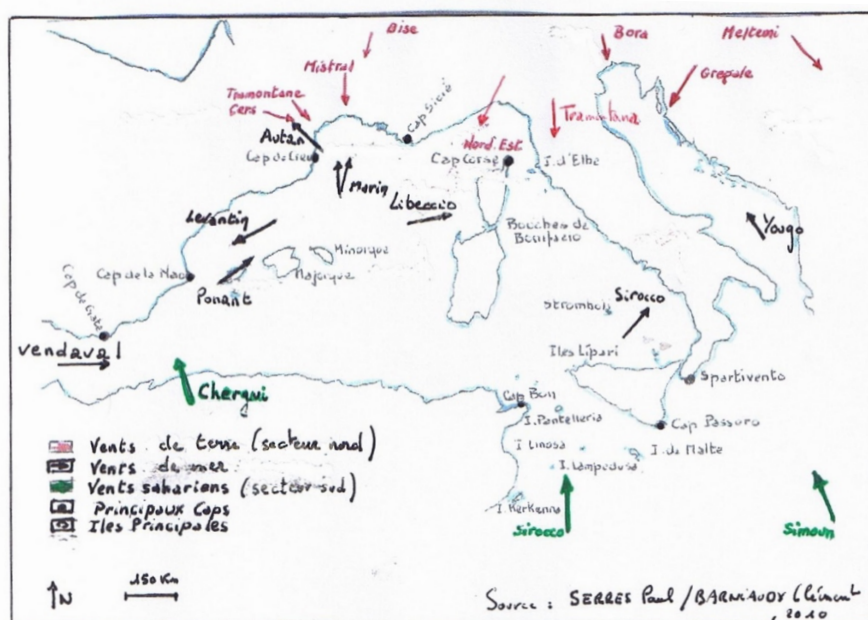 Bise
Bora
Meltemi
Mistral
Grepale
Tramontane
Cers
Tramontana
Cap Sicié
Autan
Nord. Est
Cap Corse
I. d'Elbe
Marin
Libeccio
Levantin
Bouches de
Bonifacio
Yougo
Minorque
Majorque
Cap de la Nao
Ponant
Sirocco
Stromboli
Cap de Gate
Vendaval
Iles Lipari
Spartivento
Chergui
Cap Bon
I. Pantelleria
Cap Passaro
I. Linosa
I. de Malte
I. Lampedusa
I. Kerkenna
Sirocco
Simoun
Vents de terre (secteur nord)
Vents de mer
Vents sahariens (secteur sud)
Principaux Caps
Iles Principales
N
150 Km
Source : SERRES Paul / BARNIAUDY Clément
, 2010